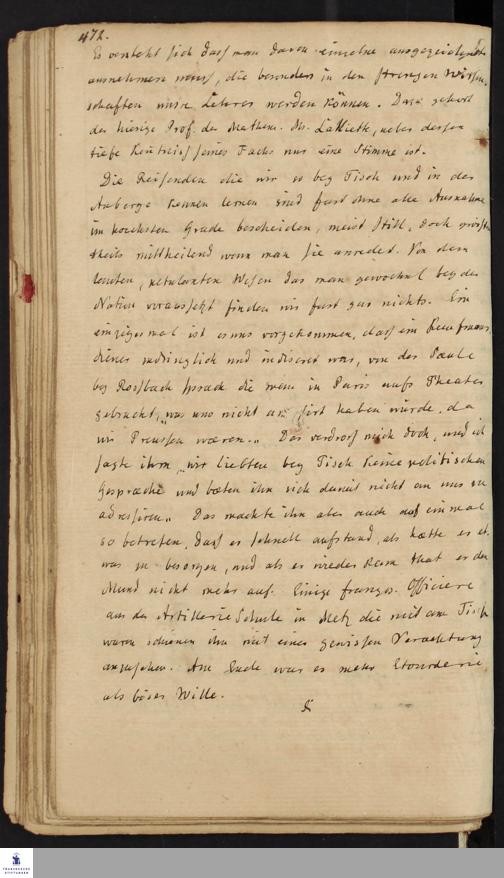 472.
Es versteht sich dass man davon einzelne ausgezeichnete
ausnehmen muss, die besonders in den strengen Wissen-
schaften unsre Lehrer werden können. Dazu gehört
der hiesige Prof. der Mathem. Mr. ueber dessen
tiefe Kentniss seines Fachs nur eine Stimme ist.
Die Reisenden die wir so bey Tisch und in der
Auberge kennen lernen sind fast ohne alle Ausnahme
im hoechsten Grade bescheiden, meist still, doch gröss
theils mittheilend wenn man sie anredet. Von dem
lauten, petulanten Wesen das man gewoehnl bey der
Nation voraussetzt finden wir fast gar nichts. Ein
einzigesmal ist es uns vorgekommen, dass ein
diener zudringlich und indiscret war, von der
bey Rossbach sprach die man in Paris aufs Theater
gebracht, „was uns nicht haben würde, da
wir Preussen waeren.„ Das verdross mich doch, und ich
sagte ihm „wir liebten bey Tisch keine politischen
Gespräche und baeten ihn sich damit nicht an uns zu
adressiren„ Das machte ihn aber auch auf einmal
so betreten, dass er schnell aufstand, als haette er et-
was zu besorgen, und als er wieder kam that er den
Mund nicht mehr auf. Einige französ. Officiere
aus der Artillerie Schule in Metz die mit am Tisch
waren schienen ihn mit einer gewissen Verachtung
anzusehen. Am Ende war es mehr Etourderie
als böser Wille.
FRANCKESCHE
STIFTUNGEN